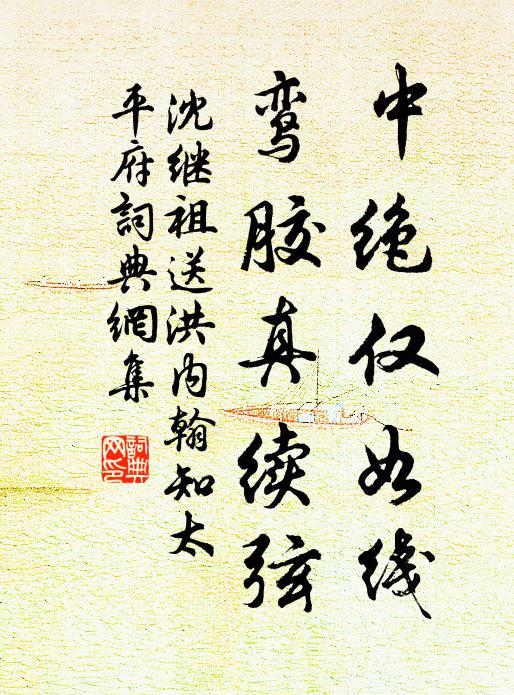 中绝仅如线
鸾胶真续弦
沈继祖送洪内翰知太
平府詞典網集
詞典
网印